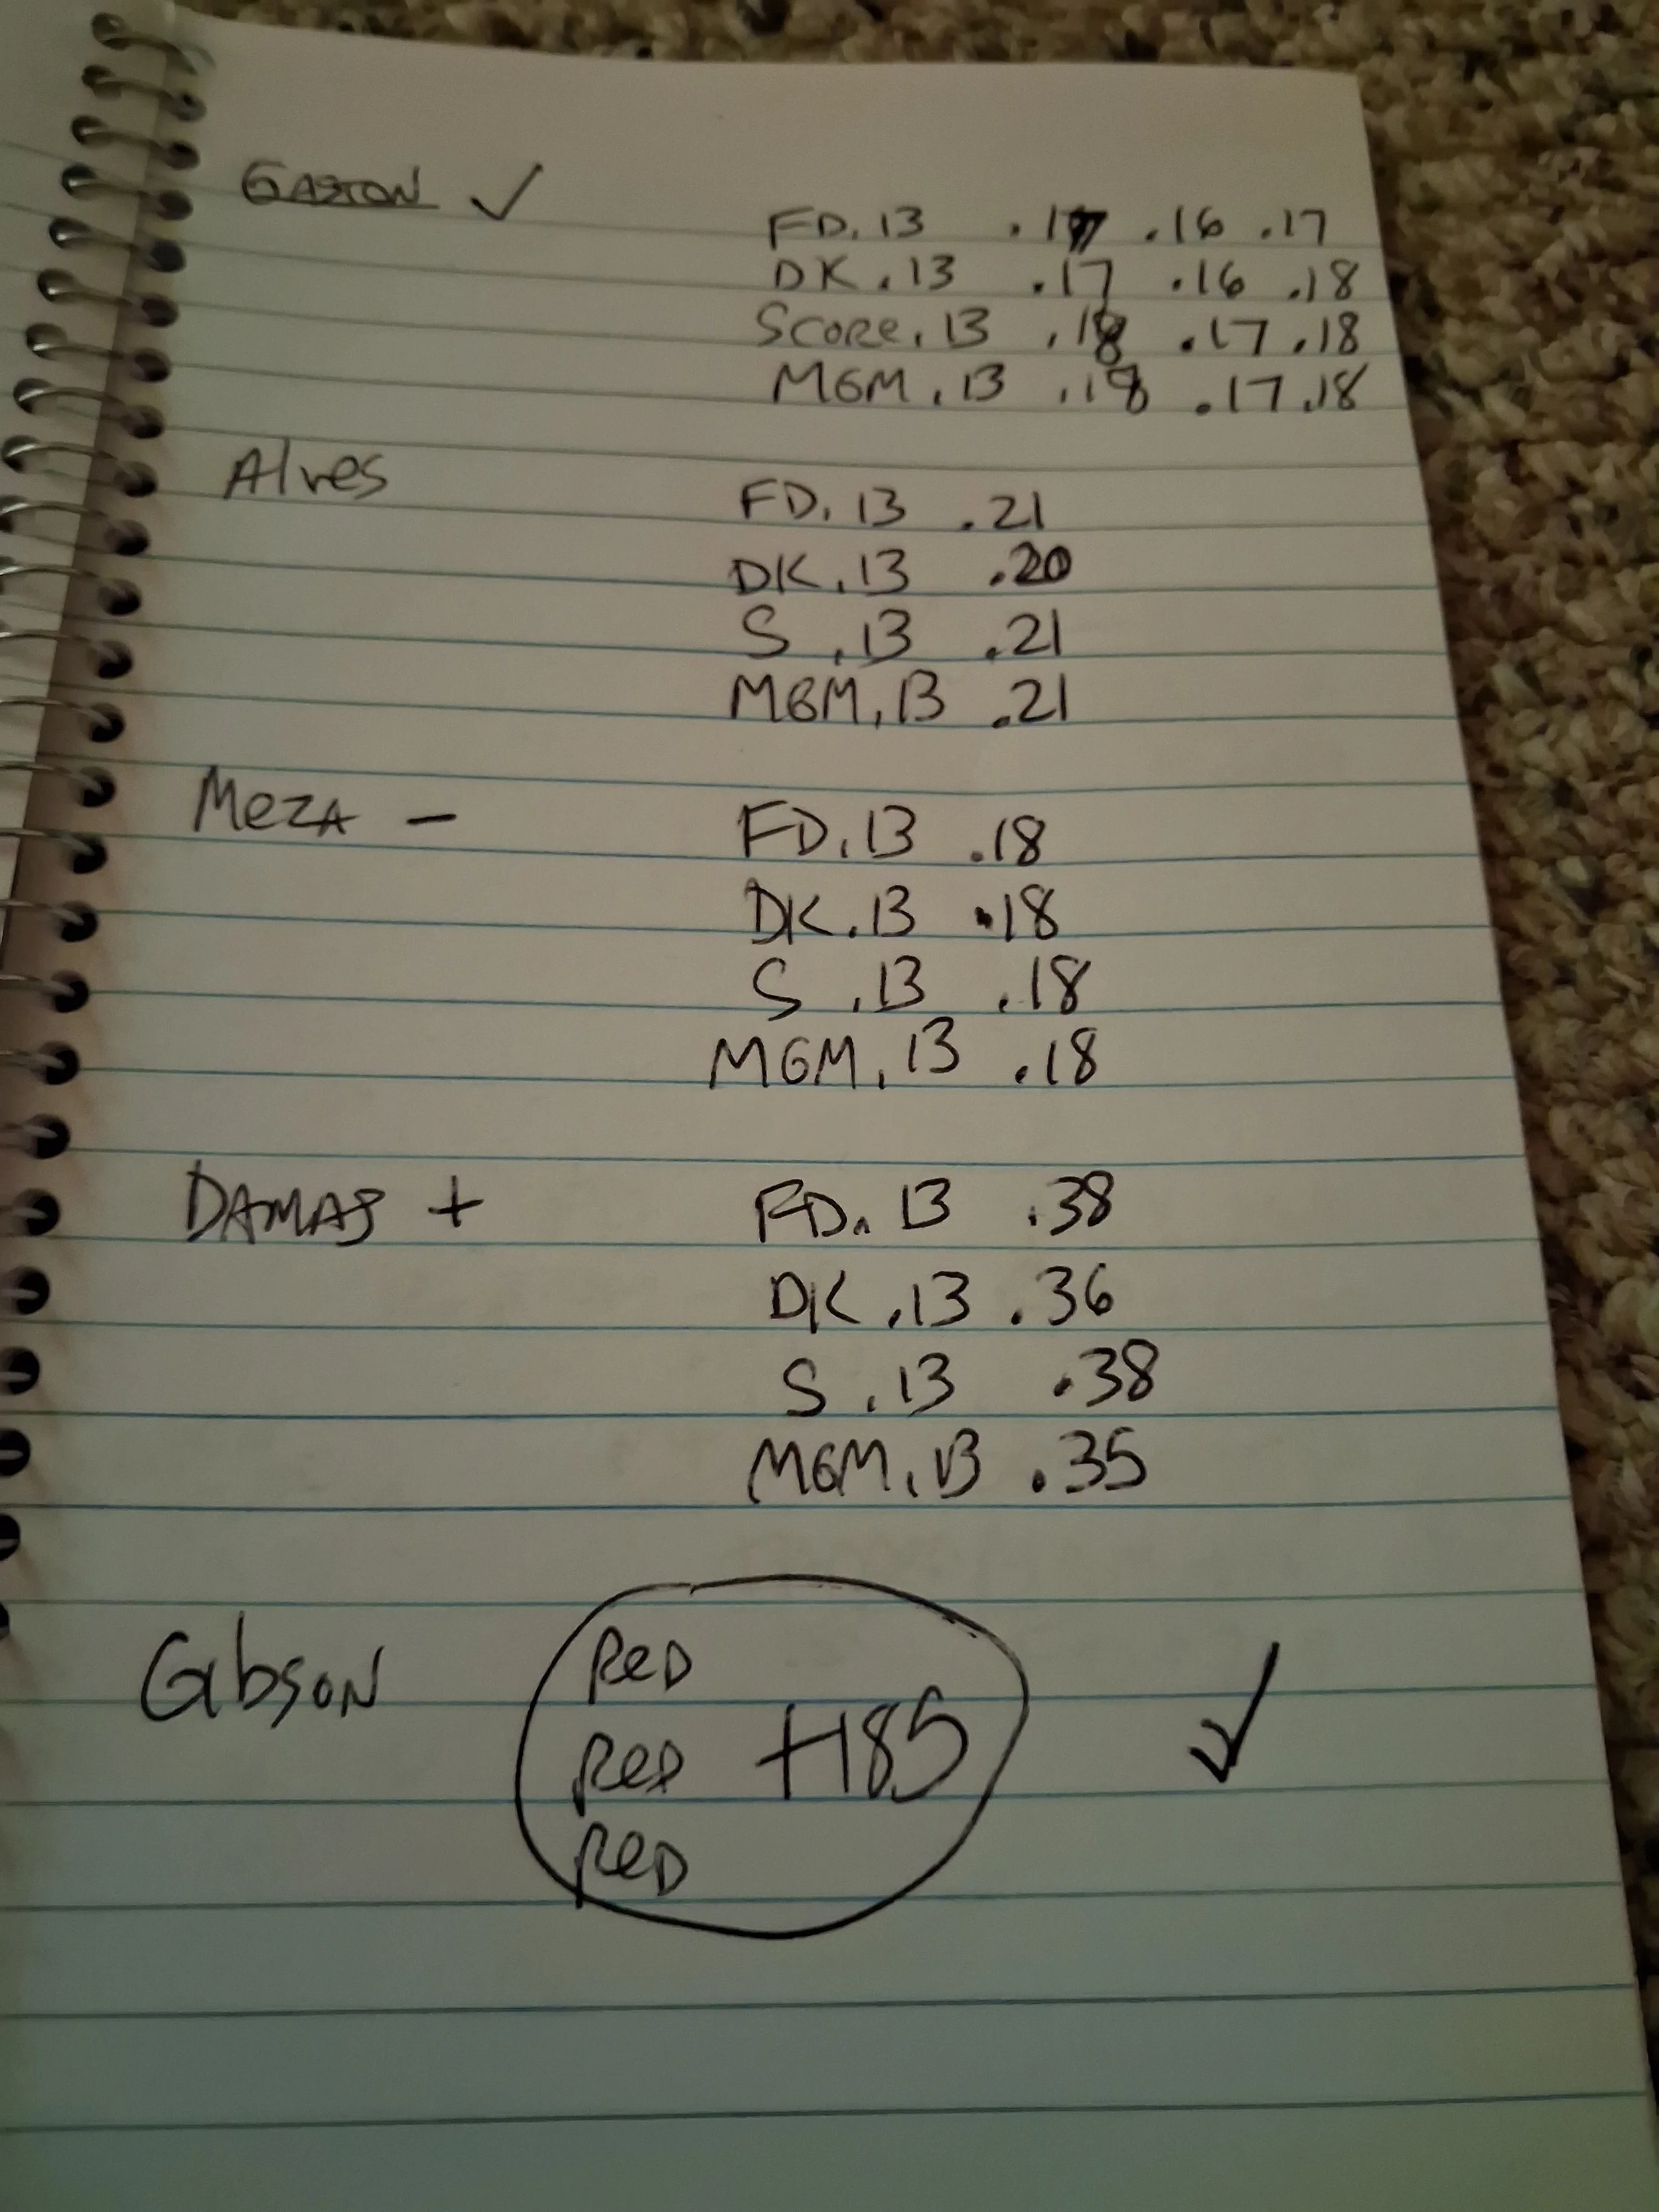 GASTON ✓
FD .13 .17 .16 .17
DK .13 .17 .16 .18
SCORE .13 .18 .17 .18
MGM .13 .18 .17 .18
Alves
FD .13 .21
DK .13 .20
S .13 .21
MGM .13 .21
MeZA –
FD .13 .18
DK .13 .18
S .13 .18
MGM .13 .18
DAMAS +
FD .13 .38
DK .13 .36
S .13 .38
MGM .13 .35
GibsON
ReD
ReD +185 ✓
ReD